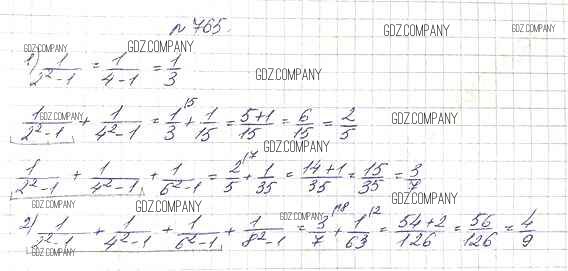 №765.
GDZ.COMPANY GDZ.COMPANY GDZ.COMPANY GDZ.COMPANY
1) 1/(2²-1) = 1/(4-1) = 1/3
GDZ.COMPANY
1/(2²-1) + 1/(4²-1) = 1/3 ⁽⁵ + 1/15 = (5+1)/15 = 6/15 = 2/5
GDZ.COMPANY GDZ.COMPANY
GDZ.COMPANY
1/(2²-1) + 1/(4²-1) + 1/(6²-1) = 2/5 ⁽⁷ + 1/35 = (14+1)/35 = 15/35 = 3/7
GDZ.COMPANY GDZ.COMPANY GDZ.COMPANY
2) 1/(2²-1) + 1/(4²-1) + 1/(6²-1) + 1/(8²-1) = 3/7 ⁽¹⁸ + 1/63 ⁽² = (54+2)/126 = 56/126 = 4/9
GDZ.COMPANY GDZ.COMPANY